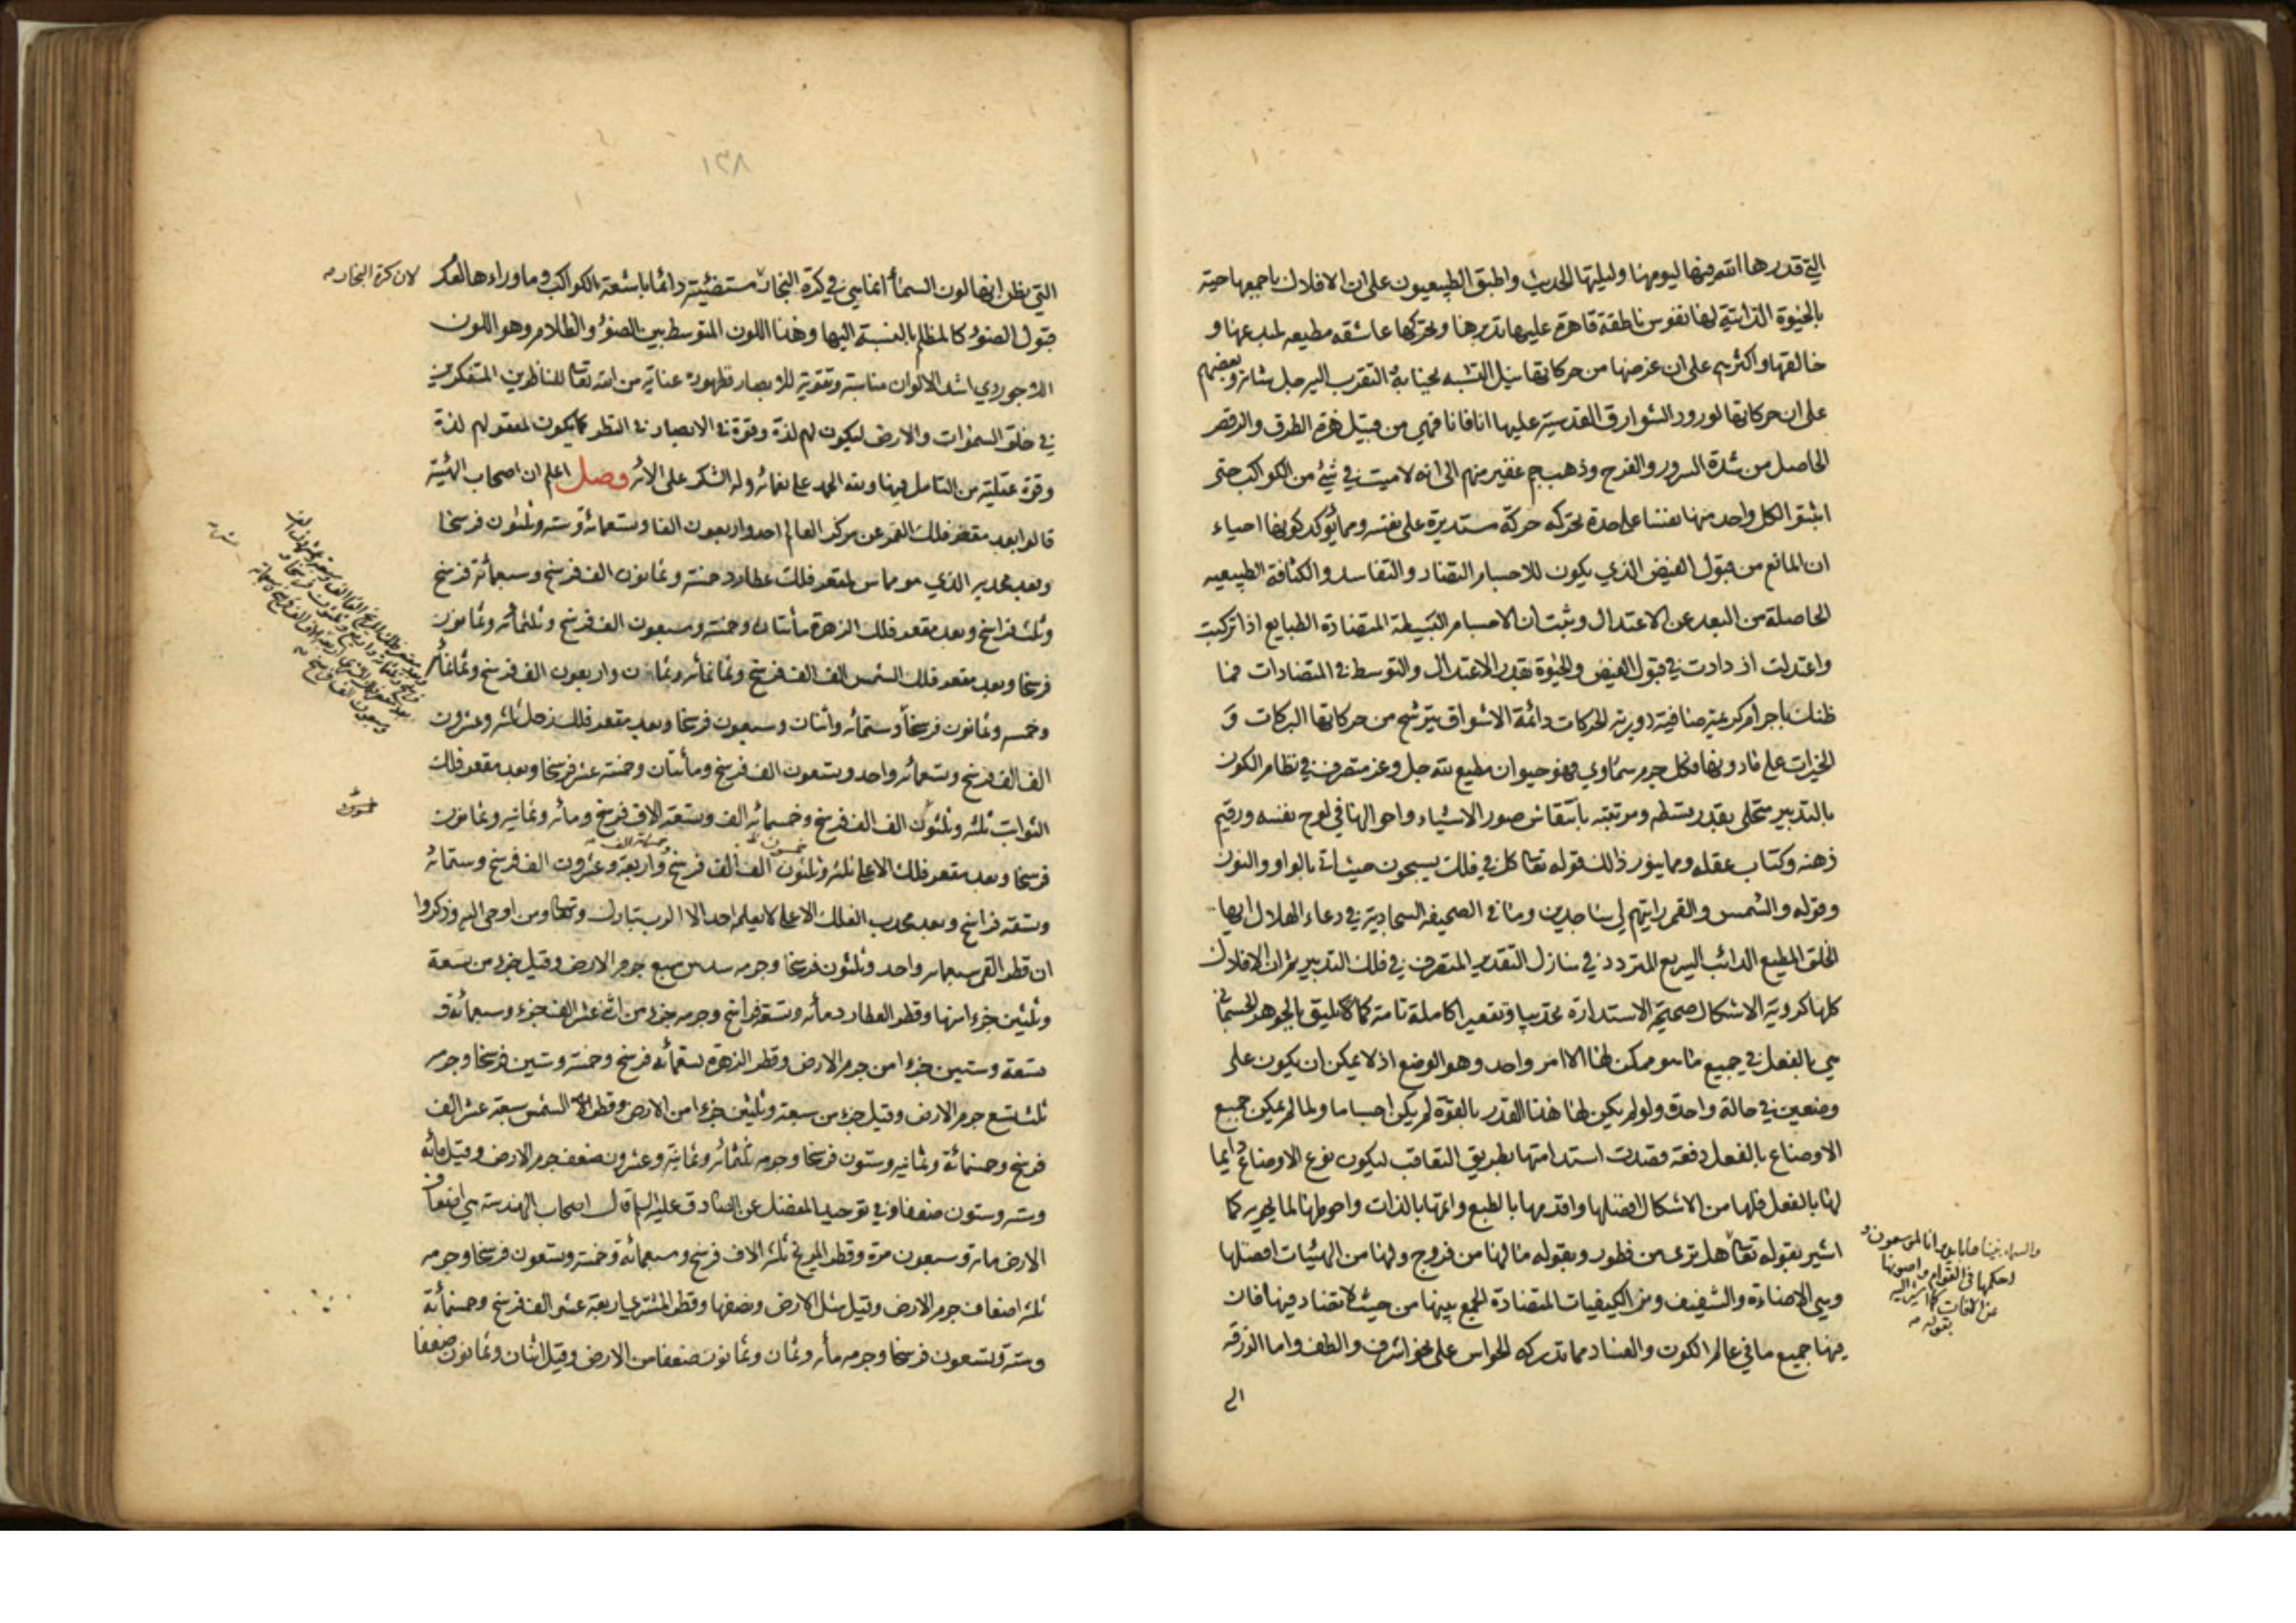 التي قدرها الله فيها ليومها وليلتها الحديث واطبق الطبيعيون على ان الافلاك باجمعها حية
بالحيوة الذاتية لها نفوس ناطقة قاهرة عليها تدبرها وتحركها عاشقه مطيعه لمبدعها و
خالقها واكثرهم على ان غرضها من حركاتها نيل التشبه بجنابه التقرب اليه جل شانه وبعضهم
على ان حركاتها لورود الشوارق القدسية عليها انا فانا فهي من قبيل هزة الطرب والرقص
الحاصل من شدة السرور والفرح وذهب جم غفير منهم الى انه لا ميت في شئ من الكواكب حتى
اثبتوا لكل واحد منها نفسا على حدة تحركه حركة مستديرة على نفسه ومما يؤكد كونها احياء
ان المانع من قبول الفيض الذي يكون للاجسام التضاد والتفاسد والكثافة الطبيعيه
الحاصلة من البعد عن الاعتدال وثبت ان الاجسام البسيطة المتضادة الطبايع اذا تركبت
واعتدلت ازدادت في قبول الفيض والحيوة بقدر الاعتدال والتوسط في المتضادات فما
ظنك باجرام كريمة صافية دورية الحركات دائمة الاشواق يترشح من حركاتها البركات و
الخيرات على مادونها فكل جرم سماوي فهو حيوان مطيع لله جل وعز متصرف في نظام الكون
بالتدبير متحلى بقدر بسطه ومرتبته بانتقاش صور الاشياء واحوالها في لوح نفسه ورقيم
ذهنه وكتاب عقله ومما ينور ذلك قوله تعا كل في فلك يسبحون حيث اتى بالواو والنون
وقوله والشمس والقمر رايتهم لي ساجدين وما في الصحيفه السجادية في دعاء الهلال ايها
الخلق المطيع الدائب السريع المتردد في منازل التقدير المتصرف في فلك التدبير ثم ان الافلاك
كلها كروية الاشكال صحيحة الاستدارة تحديبا وتقعيرا كاملة تامة كما يليق بالجوهر الجسماني
هي بالفعل في جميع ما هو ممكن لها الا امر واحد وهو الوضع اذ لا يمكن ان يكون على
وضعين في حالة واحدة ولو لم يكن لها هذا القدر بالقوة لم يكن اجساما ولما لم يمكن جميع
الاوضاع بالفعل دفعة قصدت استدامتها بطريق التعاقب ليكون نوع الاوضاع دايما
لها بالفعل فلها من الاشكال افضلها واقدمها بالطبع واتمها بالذات واحوطها لما يحويه كما
اشير بقوله تعا هل ترى من فطور وبقوله ما لها من فروج ولها من الهيئات افضلها
وهي الاضاءة والشفيف ومن الكيفيات المتضادة الجمع بينها من حيث لا تضاد فيها فان
فيها جميع ما في عالم الكون والفساد مما تدركه الحواس على نحو اشرف والطف واما الزرقه
الى
والسماء بنيناها بايد وانا لموسعون و
احكمها في القوام واصونها
عن الافات كما اشير اليه
بقوله
١٣٨
التي يظن انها لون السماء انما هي في كرة البخار مستضيئة دائما باشعة الكواكب وما وراءها لعدم
لان كرة البخار
قبول الضوء كالمظلم بالنسبة اليها وهذا اللون المتوسط بين الضوء والظلام وهو اللون
اللاجوردي اشد الالوان مناسبة وتقوية للابصار فظهوره عناية من الله تعا للناظرين المتفكرين
في خلق السموات والارض ليكون لهم لذة وقوة في الابصار في النظر كما يكون لعقولهم لذة
وقوة عقلية من التامل فيها ولله الحمد على نعمائه وله الشكر على الائه فصل اعلم ان اصحاب الهيئة
قالوا بعد مقعر فلك القمر عن مركز العالم احد واربعون الفا وتسعمائة وستة وثلثون فرسخا
وبعد محدبه الذي هو مماس لمقعر فلك عطارد خمسة وثمانون الف فرسخ وسبعمائة فرسخ
وثلث فراسخ وبعد مقعر فلك الزهرة مأتان وخمسة وسبعون الف فرسخ وثلثمائه وثمانون
فرسخا وبعد مقعر فلك الشمس الف الف فرسخ وثمانمائه وثمان واربعون الف فرسخ وثمانمائه
وخمسه وثمانون فرسخا وستمائه واثنان وسبعون فرسخا وبعد مقعر فلك زحل ثلثه وعشرون
الف الف فرسخ وتسعمائه واحد وتسعون الف فرسخ ومأتان وخمسة عشر فرسخا وبعد مقعر فلك
الثوابت ثلثه وثلثون الف الف فرسخ وخمسمائه الف وتسعة الاف فرسخ ومائه وثمانيه وثمانون
فرسخا وبعد مقعر فلك الاعلى ثلثه وثلثون الف الف فرسخ واربعة وعشرون الف فرسخ وستمائه
وتسعة فراسخ وبعد محدب الفلك الاعلى لا يعلمه احد الا الرب تبارك وتعا ومن اوحى اليه وذكروا
ان قطر القمر سبعمائه واحد وثلثون فرسخا وجرمه سدس سبع جرم الارض وقيل جزء من تسعة
وثلثين جزءا منها وقطر العطارد مأته وتسعة فراسخ وجرمه جزء من اثنى عشر الف جزء وسبعمائة و
تسعة وستين جزءا من جرم الارض وقطر الزهرة تسعمائه فرسخ وخمسة وستين فرسخا وجرمه
ثلث تسع جرم الارض وقيل جزء من سبعة وثلثين جزءا من الارض وقطر الشمس سبعة عشر الف
فرسخ وخمسمائة وثمانيه وستون فرسخا وجرمه ثلثمائه وثمانية وعشرون ضعف جرم الارض وقيل مائه
وسته وستون ضعفا وفي توحيد المفضل عن الصادق عليه السلام قال اصحاب الهندسة هي اضعاف
الارض مائة وسبعون مرة وقطر المريخ ثلثه الاف فرسخ وسبعمائة وخمسة وتسعون فرسخا وجرمه
ثلثه اضعاف جرم الارض وقيل مثل الارض ونصفها وقطر المشتري اربعة عشر الف فرسخ وخمسمائة
وستة وتسعون فرسخا وجرمه مأه وثمان وثمانون ضعفا من الارض وقيل اثنان وثمانون ضعفا